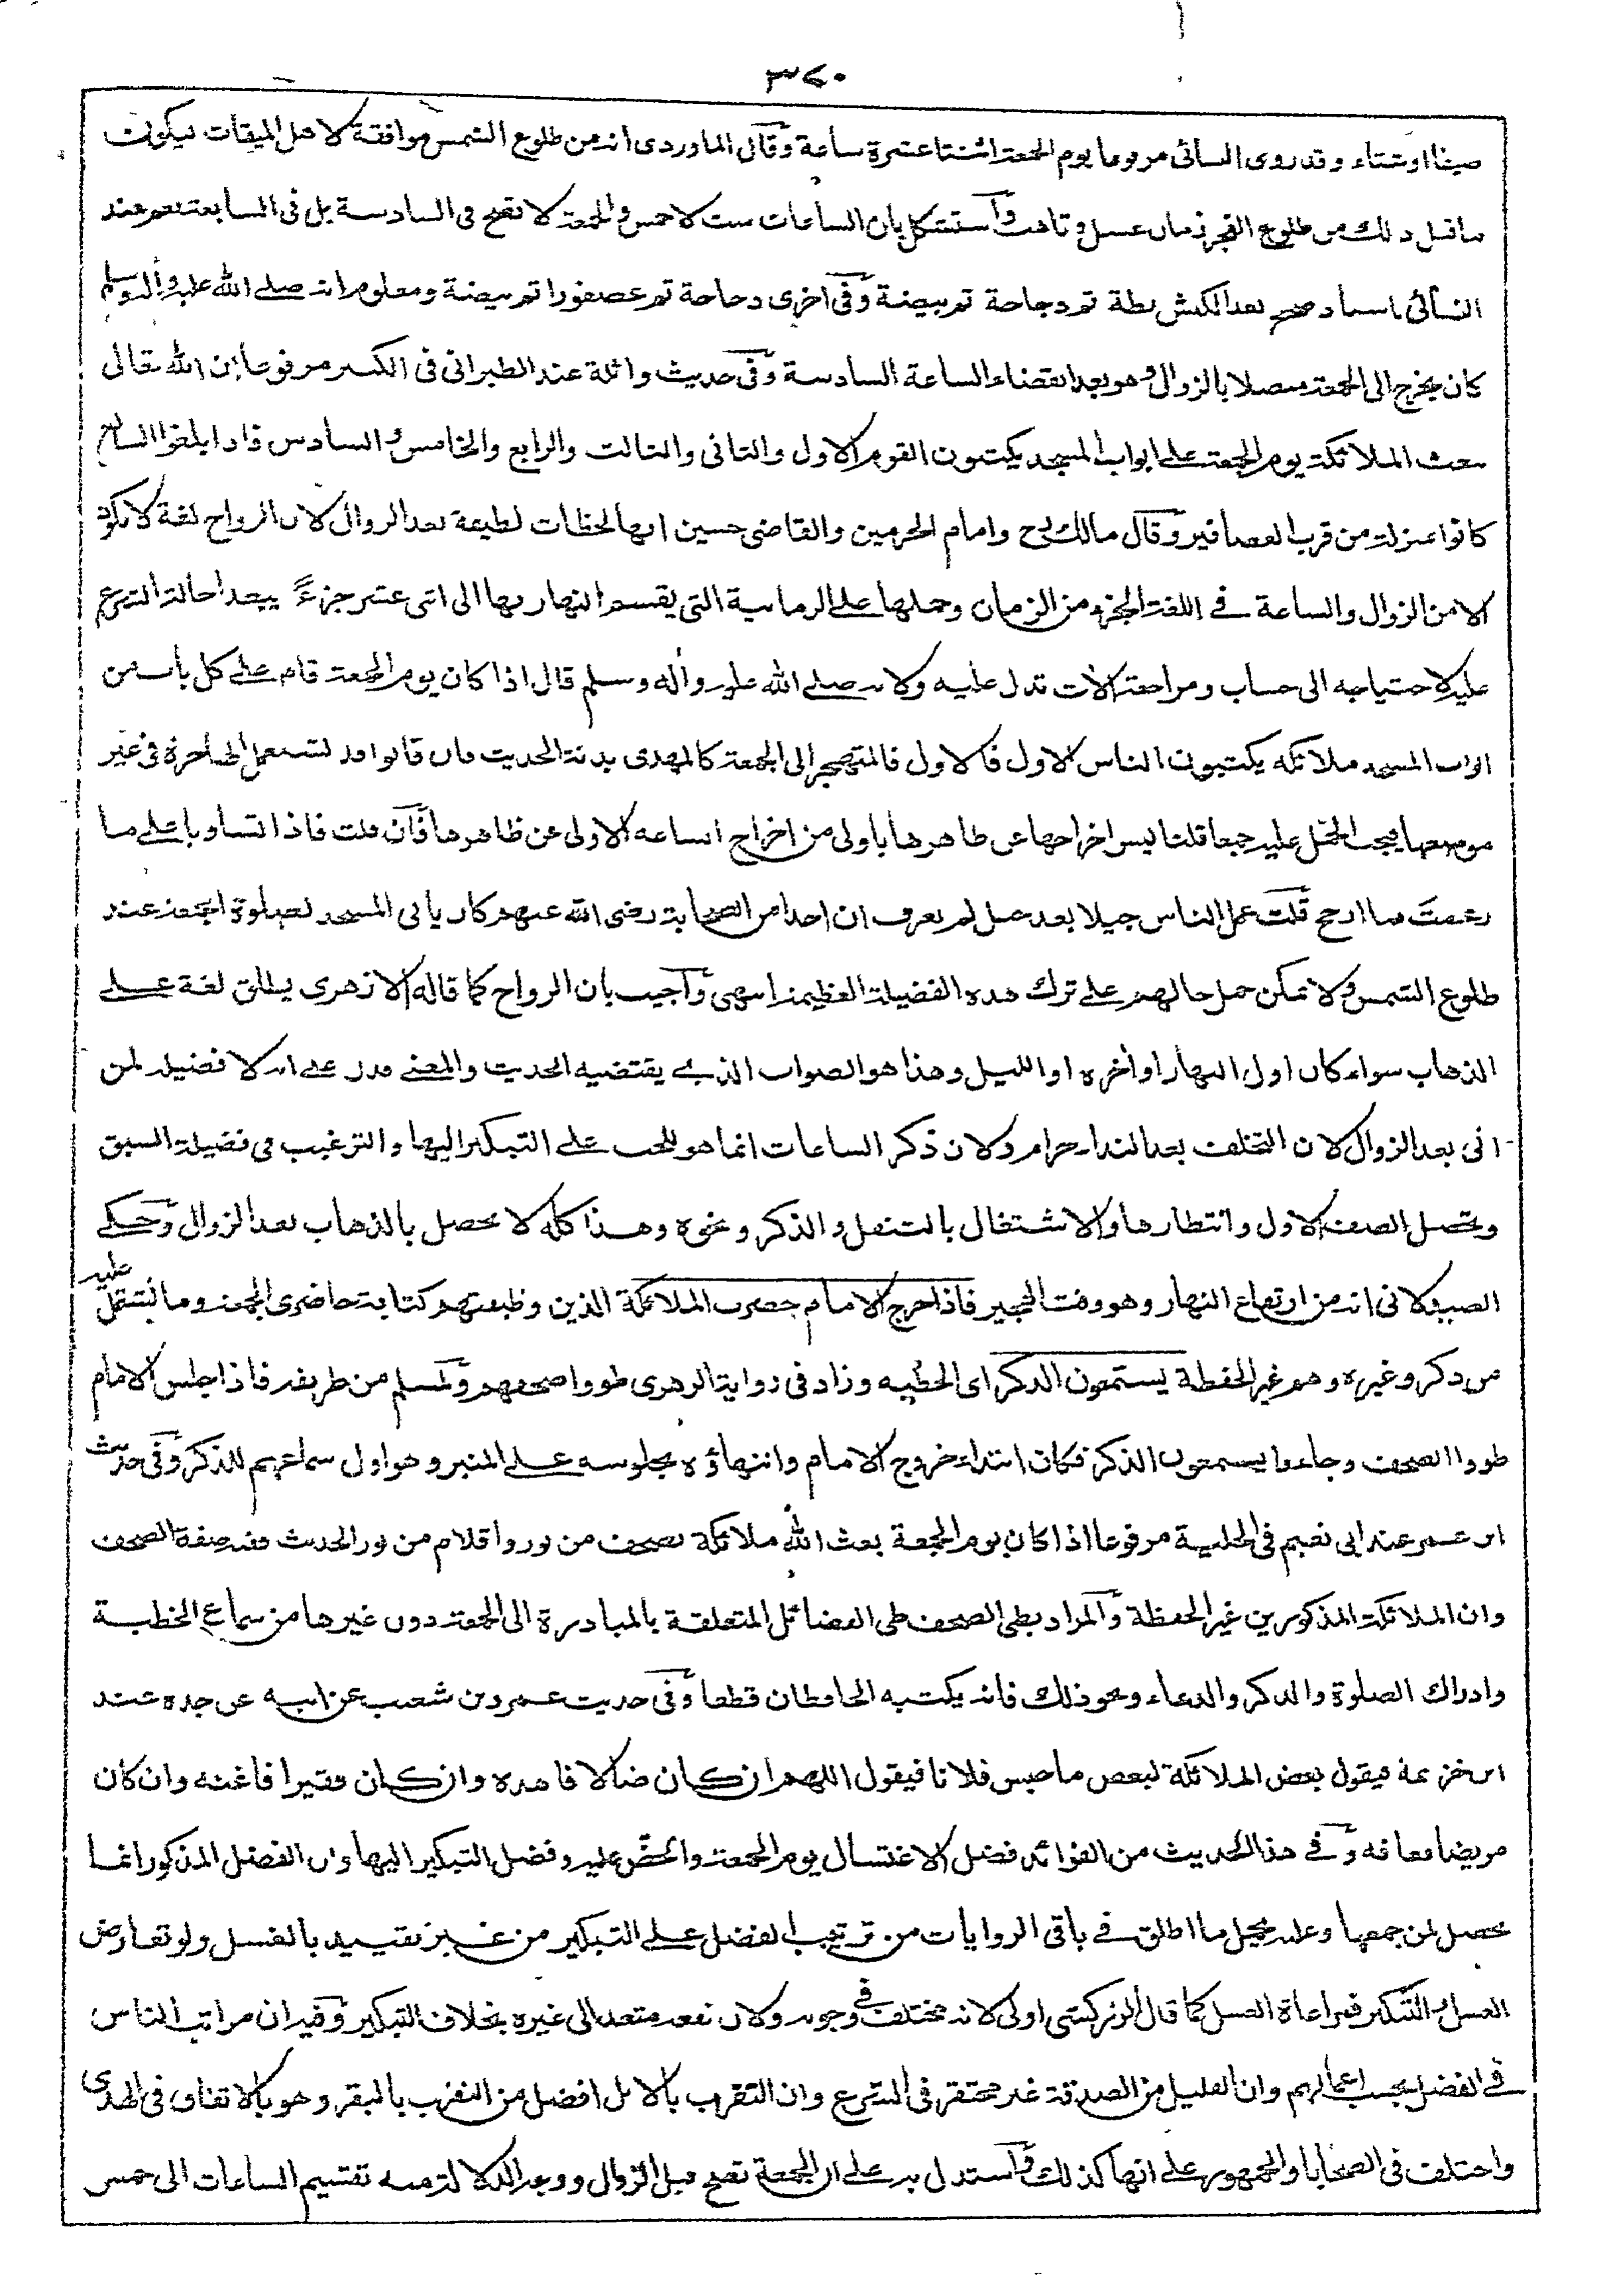 ٣٧٠
صيفا او شتاء وقد روى النسائى مرفوعا يوم الجمعة اثنتا عشرة ساعة وقال الماوردى انه من طلوع الشمس موافقة لاهل الميقات ليكون
ما قبل ذلك من طلوع الفجر زمان غسل وتاهب واستشكل بان الساعات ست لا خمس والجمعة لا تصح فى السادسة بل فى السابعة نعم عند
النسائى باسناد صحيح بعد الكبش بطة ثم دجاجة ثم بيضة وفى اخرى دجاجة ثم عصفورا ثم بيضة ومعلوم انه صلى الله عليه واله وسلم
كان يخرج الى الجمعة متصلا بالزوال وهو بعد انقضاء الساعة السادسة وفى حديث واثلة عند الطبرانى فى الكبير مرفوعا ان الله تعالى
يبعث الملائكة يوم الجمعة على ابواب المسجد يكتبون القوم الاول والثانى والثالث والرابع والخامس والسادس فاذا بلغوا السابع
كانوا بمنزلة من قرب العصافير وقال مالك رح وامام الحرمين والقاضى حسين انها لحظات لطيفة بعد الزوال لان الرواح لغة لا يكون
الا من الزوال والساعة فى اللغة الجزء من الزمان وحملها على الزمانية التى يقسم النهار بها الى اثنى عشر جزءً يبعد احالة الشرع
عليه لاحتياجه الى حساب ومراجعة الات تدل عليه ولانه صلى الله عليه واله وسلم قال اذا كان يوم الجمعة قام على كل باب من
ابواب المسجد ملائكة يكتبون الناس الاول فالاول فالمتهجر الى الجمعة كالمهدى بدنة الحديث فان قالوا قد تستعمل الهاجرة فى غير
موضعها فيجب الحمل عليه جمعا قلنا ليس اخراجها عن ظاهرها باولى من اخراج الساعة الاولى عن ظاهرها فان قلت فاذا تساويا على ما
زعمت فما ارجح قلت عمل الناس جيلا بعد جيل لم يعرف ان احدا من الصحابة رضى الله عنهم كان ياتى المسجد لصلوة الجمعة عند
طلوع الشمس ولا يمكن حمل حالهم على ترك هذه الفضيلة العظيمة انتهى واجيب بان الرواح كما قاله الازهرى يطلق لغة على
الذهاب سواء كان اول النهار او اخره او الليل وهذا هو الصواب الذى يقتضيه الحديث والمعنى فدل على انه لا فضيلة لمن
اتى بعد الزوال لان التخلف بعد النداء حرام ولان ذكر الساعات انما هو للحث على التبكير اليها والترغيب فى فضيلة السبق
وتحصيل الصف الاول وانتظارها والاشتغال بالتنفل والذكر ونحوه وهذا كله لا يحصل بالذهاب بعد الزوال وحكى
الصيدلانى انه من ارتفاع النهار وهو وقت الهجير فاذا خرج الامام حضرت الملائكة الذين وظيفتهم كتابة حاضرى الجمعة وما تشتمل عليه
من ذكر وغيره وهم غير الحفظة يستمعون الذكر اى الخطبة وزاد فى رواية الزهرى طووا صحفهم ولمسلم من طريقه فاذا جلس الامام
طووا الصحف وجاءوا يستمعون الذكر فكان ابتداء خروج الامام وانتهاؤه بجلوسه على المنبر وهو اول سماعهم للذكر وفى حديث
ابن عمر عند ابى نعيم فى الحلية مرفوعا اذا كان يوم الجمعة بعث الله ملائكة بصحف من نور واقلام من نور الحديث ففيه صفة الصحف
وان الملائكة المذكورين غير الحفظة والمراد بطى الصحف طى الفضائل المتعلقة بالمبادرة الى الجمعة دون غيرها من سماع الخطبة
وادراك الصلوة والذكر والدعاء ونحو ذلك فانه يكتبه الحافظان قطعا وفى حديث عمرو بن شعيب عن ابيه عن جده عند
ابن خزيمة فيقول بعض الملائكة لبعض ما حبس فلانا فيقول اللهم ان كان ضالا فاهده وان كان فقيرا فاغنه وان كان
مريضا فعافه وفى هذا الحديث من الفوائد فضل الاغتسال يوم الجمعة والحضّ عليه وفضل التبكير اليها وان الفضل المذكور انما
يحصل لمن جمعها وعليه يحمل ما اطلق فى باقى الروايات من ترتيب الفضل على التبكير من غير تقييد بالغسل ولو تعارض
الغسل والتبكير فمراعاة الغسل كما قال الزركشى اولى لانه مختلف فى وجوبه ولان نفعه متعد الى غيره بخلاف التبكير وفيه ان مراتب الناس
فى الفضل بحسب اعمالهم وان القليل من الصدقة غير محتقر فى الشرع وان التقرب بالابل افضل من التقرب بالبقر وهو بالاتفاق فى الهدى
واختلف فى الضحايا والجمهور على انها كذلك واستدل به على ان الجمعة تصح قبل الزوال ووجه الدلالة منه تقسيم الساعات الى خمس